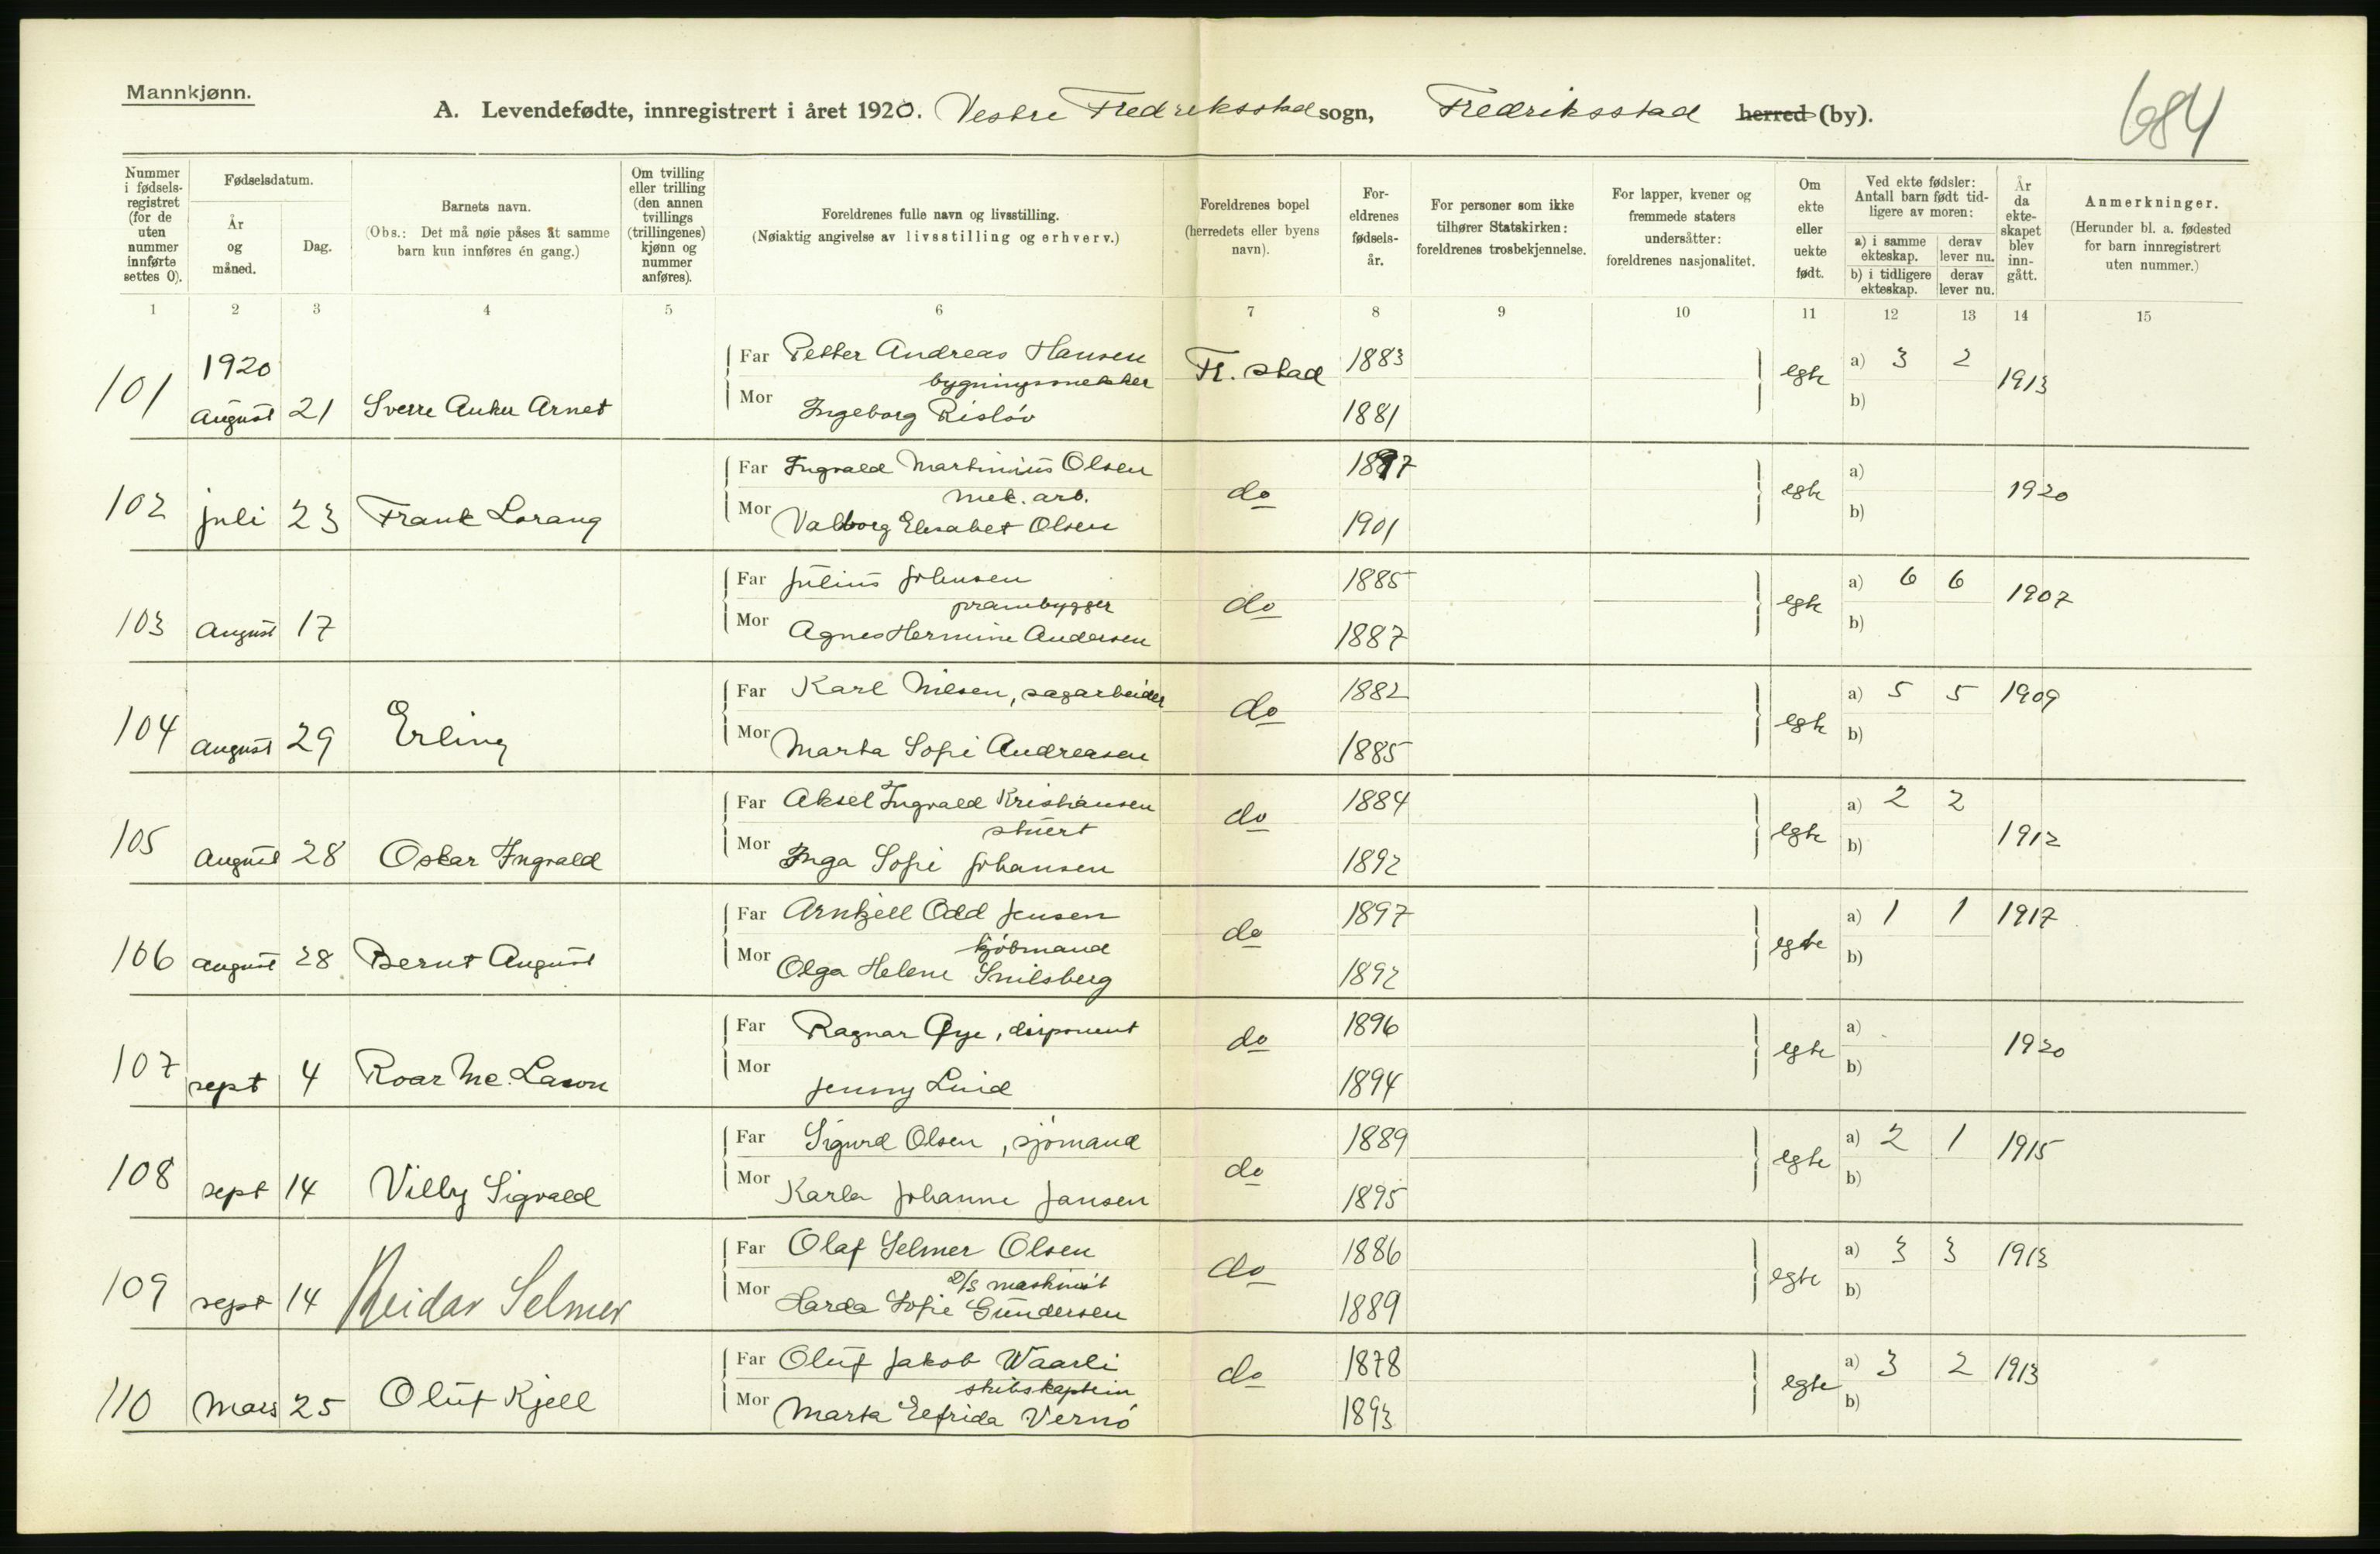 Mannkjønn.
A. Levendefødte, innregistrert i året 1920. Vestre Fredriksstad sogn, Fredriksstad herred (by).
684
Nummer i fødsels-registret (for de uten nummer innførte settes 0).
Fødselsdatum.
År og måned.
Dag.
Barnets navn.
(Obs.: Det må nøie påses åt samme barn kun innføres én gang.)
Om tvilling eller trilling (den annen tvillings (trillingenes) kjønn og nummer anføres).
Foreldrenes fulle navn og livsstilling.
(Nøiaktig angivelse av livsstilling og erhverv.)
Foreldrenes bopel (herredets eller byens navn).
For-eldrenes fødsels-år.
For personer som ikke tilhører Statskirken: foreldrenes trosbekjennelse.
For lapper, kvener og fremmede staters undersåtter: foreldrenes nasjonalitet.
Om ekte eller uekte født.
Ved ekte fødsler: Antall barn født tid-ligere av moren:
a) i samme ekteskap. derav lever nu.
b) i tidligere ekteskap. derav lever nu.
År da ekte-skapet blev inn-gått.
Anmerkninger.
(Herunder bl. a. fødested for barn innregistrert uten nummer.)
1 2 3 4 5 6 7 8 9 10 11 12 13 14 15
1920
Far Petter Andreas Hansen Fr. stad 1883 egte a) 3 2 1913
bygningssnekker
101 August 21 Sverre Arnet
Mor Ingeborg Risløv 1881 b)
Far Ingvald Martinius Olsen do 1897 egte a) 1920
mek. arb.
102 juli 23 Frank Lorang
Mor Valborg Elisabet Olsen 1901 b)
Far Julius Johnsen do 1885 egte a) 6 6 1907
prambygger
103 August 17
Mor Agnes Hermine Andersen 1887 b)
Far Karl Nilsen, sagarbeider do 1882 egte a) 5 5 1909
104 August 29 Erling
Mor Marta Sofie Andreasen 1885 b)
Far Aksel Ingvald Kristiansen do 1884 egte a) 2 2 1912
stuert
105 August 28 Oskar Ingvald
Mor Inga Sofie Johansen 1892 b)
Far Arnkjell Odd Jensen do 1897 egte a) 1 1 1917
kjøbmand
106 August 28 Bernt August
Mor Olga Helene Snilsberg 1892 b)
Far Ragnar Øye, disponent do 1896 egte a) 1920
107 sept 4 Roar
Mor Jenny Lind 1894 b)
Far Sigurd Olsen, sjømand do 1889 egte a) 2 1 1915
108 sept 14 Villy Sigvald
Mor Karla Johanne Jansen 1895 b)
Far Olaf Selmer Olsen do 1886 egte a) 3 3 1913
D/S maskinist
109 sept 14 Reidar Selmer
Mor Harda Sofie Gundersen 1889 b)
Far Oluf Jakob Waarli do 1878 egte a) 3 2 1913
skibskaptein
110 Mars 25 Oluf Kjell
Mor Marta Elfrida Vernø 1893 b)